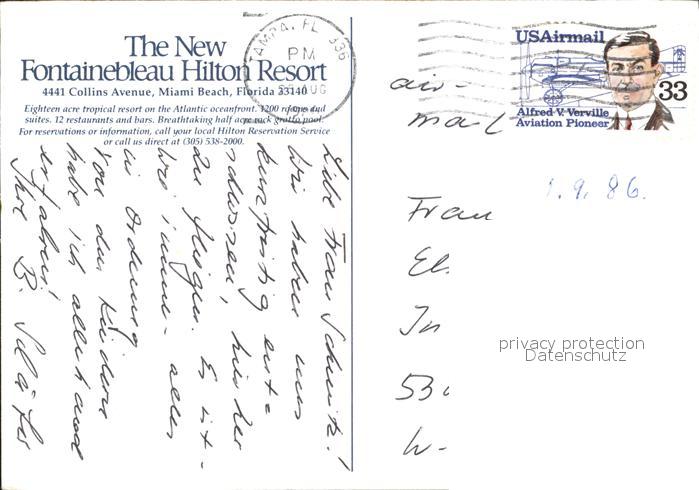 The New
Fontainebleau Hilton Resort
4441 Collins Avenue, Miami Beach, Florida 33140
Eighteen acre tropical resort on the Atlantic oceanfront. 1200 rooms and
suites. 12 restaurants and bars. Breathtaking half acre rock grotto pool.
For reservations or information, call your local Hilton Reservation Service
or call us direct at (305) 538-2000.
TAMPA, FL 336
PM
AUG
USAirmail
33
Alfred V. Verville
Aviation Pioneer
air-
mail
1.9.86.
Liebe Frau Schmitz!
Wir haben uns
kurzfristig ent-
schlossen,
hierher
zu fliegen. Es ist -
wie immer - alles
in Ordnung
Von den Kindern
habe ich allerhand
erfahren!
Ihre B. Schäfer
Frau
El.
In
53
W-
privacy protection
Datenschutz